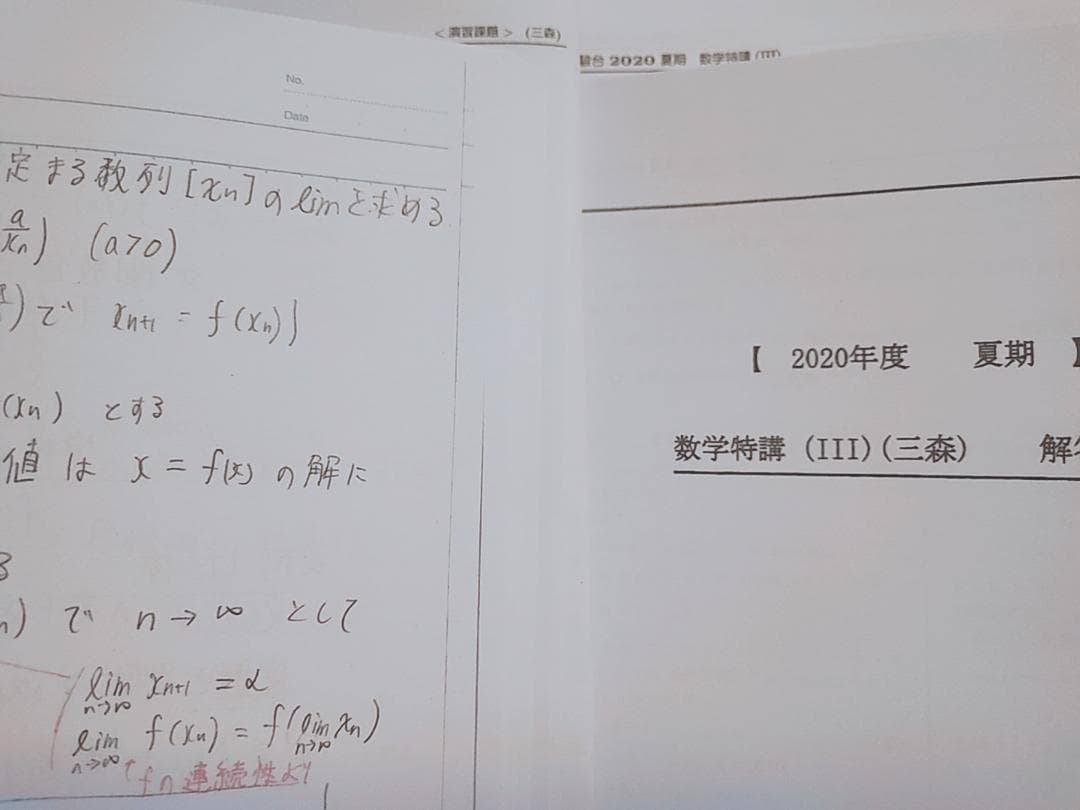 <演習課題> (三森)
No.
Date
定まる数列[xn]のlimを求める
a/xn) (a>0)
)で xn+1 = f(xn)]
(xn) とする
値 は x = f(x) の解に
る
n) で n→∞ として
lim n→∞ xn+1 = α
lim n→∞ f(xn) = f(lim n→∞ xn)
↑fの連続性より
駿台 2020 夏期 数学特講 (III)
【 2020年度 夏期 】
数学特講 (III) (三森) 解答